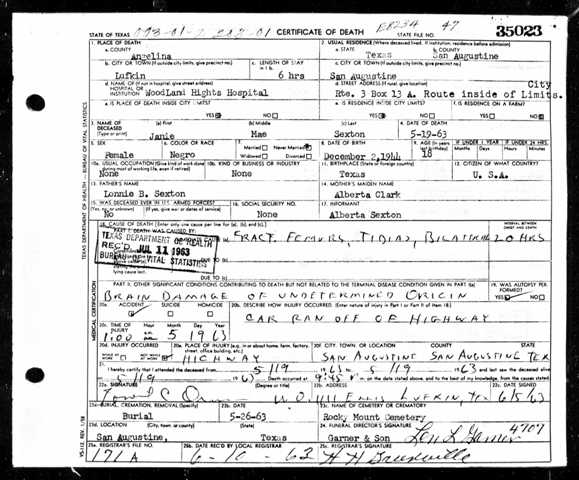 STATE OF TEXAS
CERTIFICATE OF DEATH
STATE FILE NO.
35023
1. PLACE OF DEATH
a. COUNTY
Angelina
2. USUAL RESIDENCE (Where deceased lived. If institution: residence before admission)
a. STATE
Texas
b. COUNTY
San Augustine
b. CITY OR TOWN (If outside city limits, give precinct no.)
Lufkin
c. LENGTH OF STAY in 1 b.
6 hrs
c. CITY OR TOWN (If outside city limits, give precinct no.)
San Augustine
d. NAME OF (If not in hospital, give street address) HOSPITAL OR INSTITUTION
Woodland Hights Hospital
d. STREET ADDRESS
City
Rte. 3 Box 13 A. Route inside of Limits.
e. IS PLACE OF DEATH INSIDE CITY LIMITS?
YES NO
e. IS RESIDENCE INSIDE CITY LIMITS?
YES NO
f. IS RESIDENCE ON A FARM?
YES NO
3. NAME OF DECEASED (Type or print)
(a) First
Janie
(b) Middle
Mae
(c) Last
Sexton
4. DATE OF DEATH
5-19-63
5. SEX
Female
6. COLOR OR RACE
Negro
7. Married Never Married
Widowed Divorced
8. DATE OF BIRTH
December 2, 1944
9. AGE (In years last birthday)
18
IF UNDER 1 YEAR
Months Days
IF UNDER 24 HRS.
Hours Min.
10a. USUAL OCCUPATION (Give kind of work done during most of working life, even if retired)
None
10b. KIND OF BUSINESS OR INDUSTRY
None
11. BIRTHPLACE (State or foreign country)
Texas
12. CITIZEN OF WHAT COUNTRY?
U.S.A.
13. FATHER'S NAME
Lonnie B. Sexton
14. MOTHER'S MAIDEN NAME
Alberta Clark
15. WAS DECEASED EVER IN U.S. ARMED FORCES?
(Yes, no, or unknown) (If yes, give war or dates of service)
No
16. SOCIAL SECURITY NO.
None
17. INFORMANT
Alberta Sexton
18. CAUSE OF DEATH [Enter only one cause per line for (a), (b), and (c).]
PART I. DEATH WAS CAUSED BY:
INTERVAL BETWEEN ONSET AND DEATH
FRACT. FEMURS, TIBIAS, BILATERAL 20 HRS
TEXAS DEPARTMENT OF HEALTH
REC'D JUL 11 1963
BUREAU OF VITAL STATISTICS
DUE TO (b)
DUE TO (c)
PART II. OTHER SIGNIFICANT CONDITIONS CONTRIBUTING TO DEATH BUT NOT RELATED TO THE TERMINAL DISEASE CONDITION GIVEN IN PART I(a)
19. WAS AUTOPSY PERFORMED?
YES NO
BRAIN DAMAGE OF UNDETERMINED ORIGIN
20a. ACCIDENT SUICIDE HOMICIDE
20b. DESCRIBE HOW INJURY OCCURRED. (Enter nature of injury in Part I or Part II of item 18.)
CAR RAN OFF OF HIGHWAY
20c. TIME OF INJURY
Hour Month Day Year
1:00 5 19 63
20d. INJURY OCCURRED
20e. PLACE OF INJURY (e.g. in or about home, farm, factory, street, office building, etc.)
HIGHWAY
20f. CITY, TOWN, OR LOCATION COUNTY STATE
SAN AUGUSTINE SAN AUGUSTINE TEX
21. I hereby certify that I attended the deceased from 5/19 1963 to 5/19 1963 and last saw the deceased alive on
5/19 1963. Death occurred at 9:45 P m. on the date stated above, and to the best of my knowledge, from the causes stated.
22a. SIGNATURE (Degree or title)
22b. ADDRESS
LUFKIN, TX
22c. DATE SIGNED
6/5/63
23a. BURIAL, CREMATION, REMOVAL (Specify)
Burial
23b. DATE
5-26-63
23c. NAME OF CEMETERY OR CREMATORY
Rocky Mount Cemetery
23d. LOCATION (City, town, or county) (State)
San Augustine, Texas
24. FUNERAL DIRECTOR'S SIGNATURE
Garner & Son
4707
25a. REGISTRAR'S FILE NO.
171A
25b. DATE REC'D BY LOCAL REGISTRAR
6-10-63
25c. REGISTRAR'S SIGNATURE
TEXAS DEPARTMENT OF HEALTH — BUREAU OF VITAL STATISTICS
MEDICAL CERTIFICATION